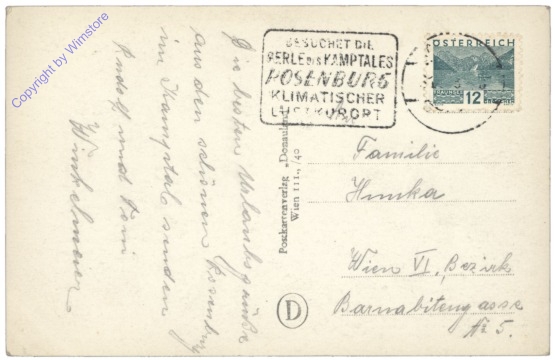 Copyright by Wimstore
BESUCHET DIE
PERLE DES KAMPTALES
ROSENBURG
KLIMATISCHER
LUFTKURORT
ÖSTERREICH
12
Die besten Urlaubsgrüße
aus den schönen Rosenburg
im Kamptal senden
Rudolf und Toni
Winkelmeier
Postkartenverlag „Donauland"
Wien III., /40
D
Familie
Hruska
Wien VI., Bezirk
Barnabitengasse
Nr 5.